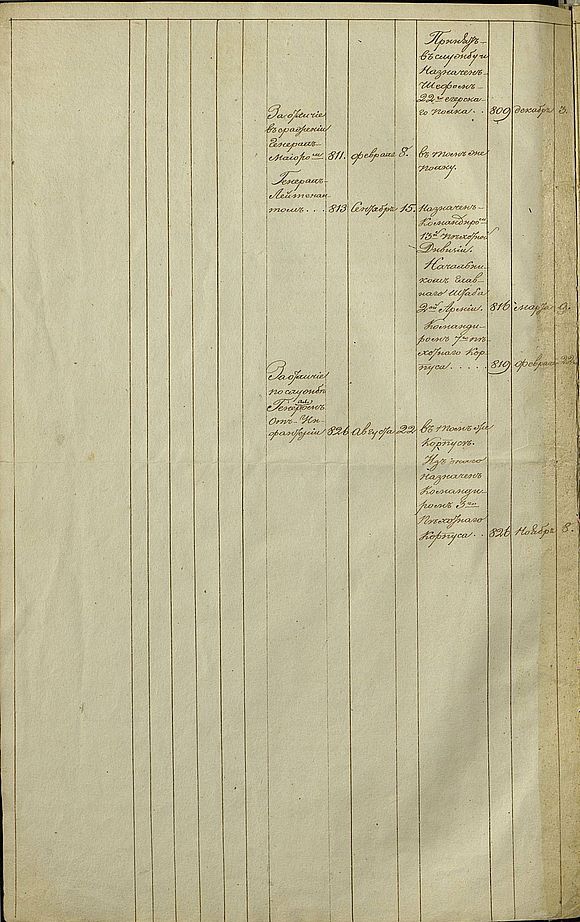 Принятъ
въ службу и
Назначенъ
Шефомъ
22го егерска
го полка . . 809 декабрь 3.
За отличіе
въ сраженіи
Генералъ-
Маіоромъ 811. февраля 8. въ томъ же
полку.
Генералъ-
Лейтенан
томъ . . . 813 Сентября 15. Назначенъ
Командиромъ
13й пѣхотной
Дивизіи.
Начальни
комъ Глав
наго Штаба
2й Арміи. 816 марта 9.
Команди
ромъ 7го пѣ
хотнаго Кор
пуса . . . . . 819 февраля 22.
За отличіе
по службѣ
Генераломъ
отъ Ин
фантеріи 826 Августа 22 въ томъ же
Корпусѣ.
Изъ онаго
Назначенъ
Команди
ромъ 3го
Пѣхотнаго
Корпуса . . 826 Ноября 8.